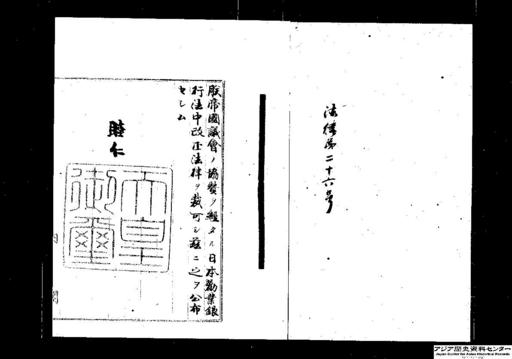 法律第二十六号
朕帝國議會ノ協賛ヲ經タル日本勸業銀
行法中改正法律ヲ裁可シ茲ニ之ヲ公布
セシム
睦仁
天皇
御璽
アジア歴史資料センター
Japan Center for Asian Historical Records